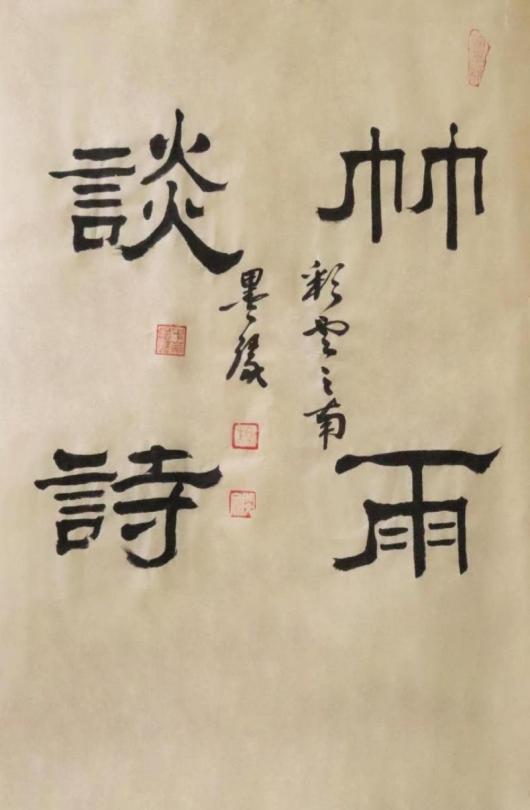 竹雨
談詩
彩雲之南
墨緣